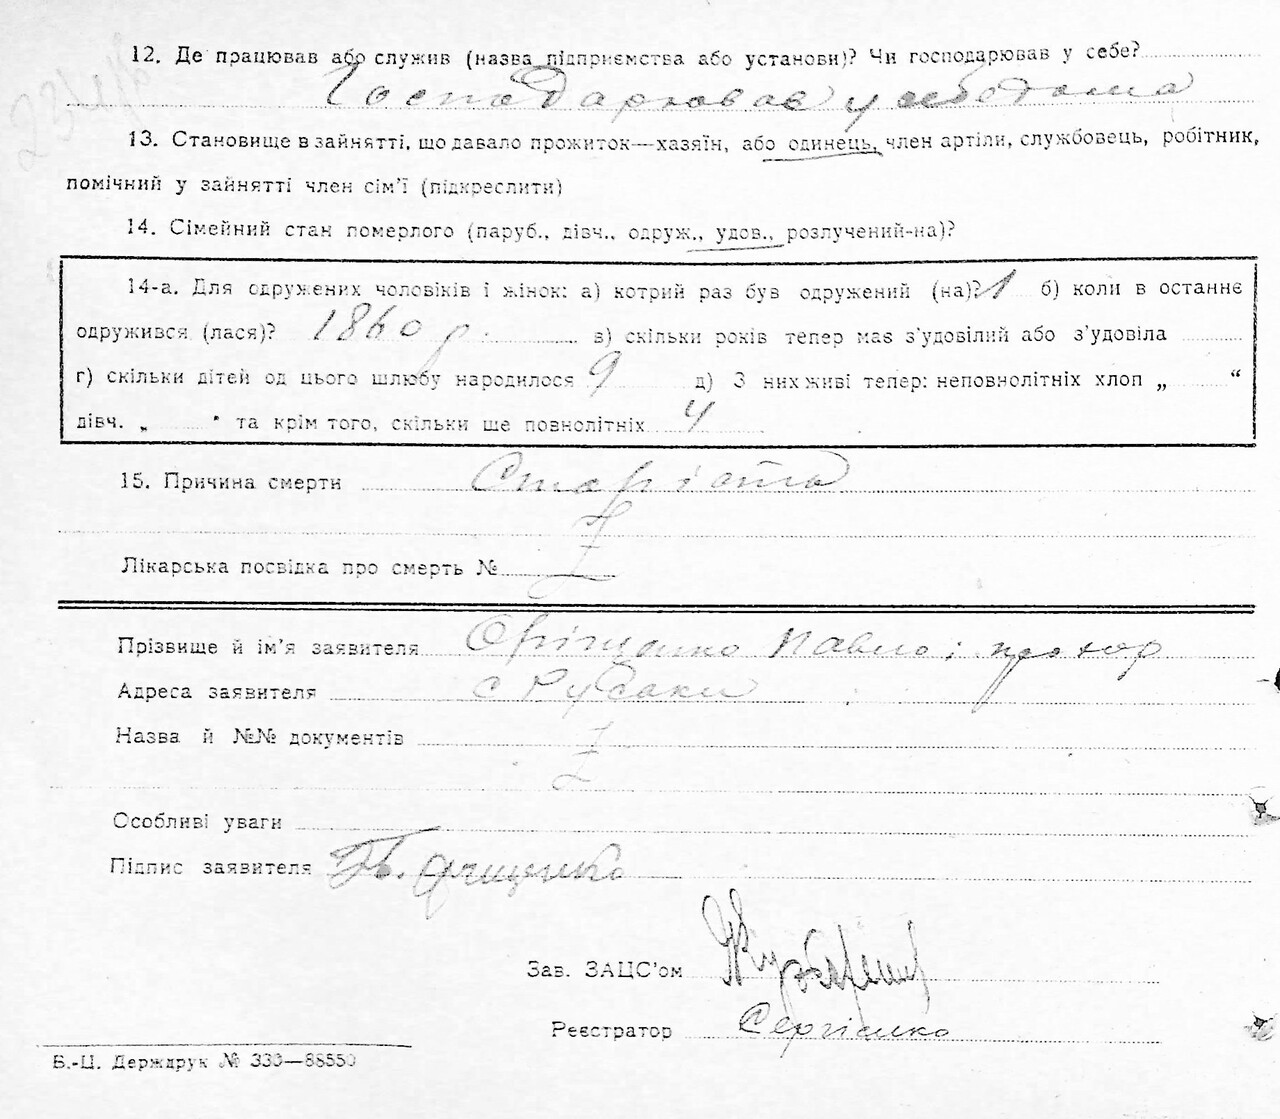 12. Де працював або служив (назва підприємства або установи)? Чи господарював у себе?
Господарював у себе дома
13. Становище в зайнятті, що давало прожиток—хазяїн, або одинець, член артіли, службовець, робітник,
помічний у зайнятті член сім’ї (підкреслити)
14. Сімейний стан померлого (паруб., дівч., одруж., удов., розлучений-на)?
14-а. Для одружених чоловіків і жінок: а) котрий раз був одружений (на)? 1 б) коли в останнє
одружився (лася)? 1860 р. в) скільки років тепер має з’удовілий або з’удовіла
г) скільки дітей од цього шлюбу народилося 9 д) З них живі тепер: неповнолітніх хлоп „ “
дівч. „ “ та крім того, скільки ще повнолітніх 4
15. Причина смерти Старість
Лікарська посвідка про смерть №
Прізвище й ім’я заявителя Павло і прохор
Адреса заявителя с Рудаки
Назва й №№ документів
Особливі уваги
Підпис заявителя
Зав. ЗАЦС’ом
Реєстратор Сергієнко
Б.-Ц. Держдрук № 330—88550